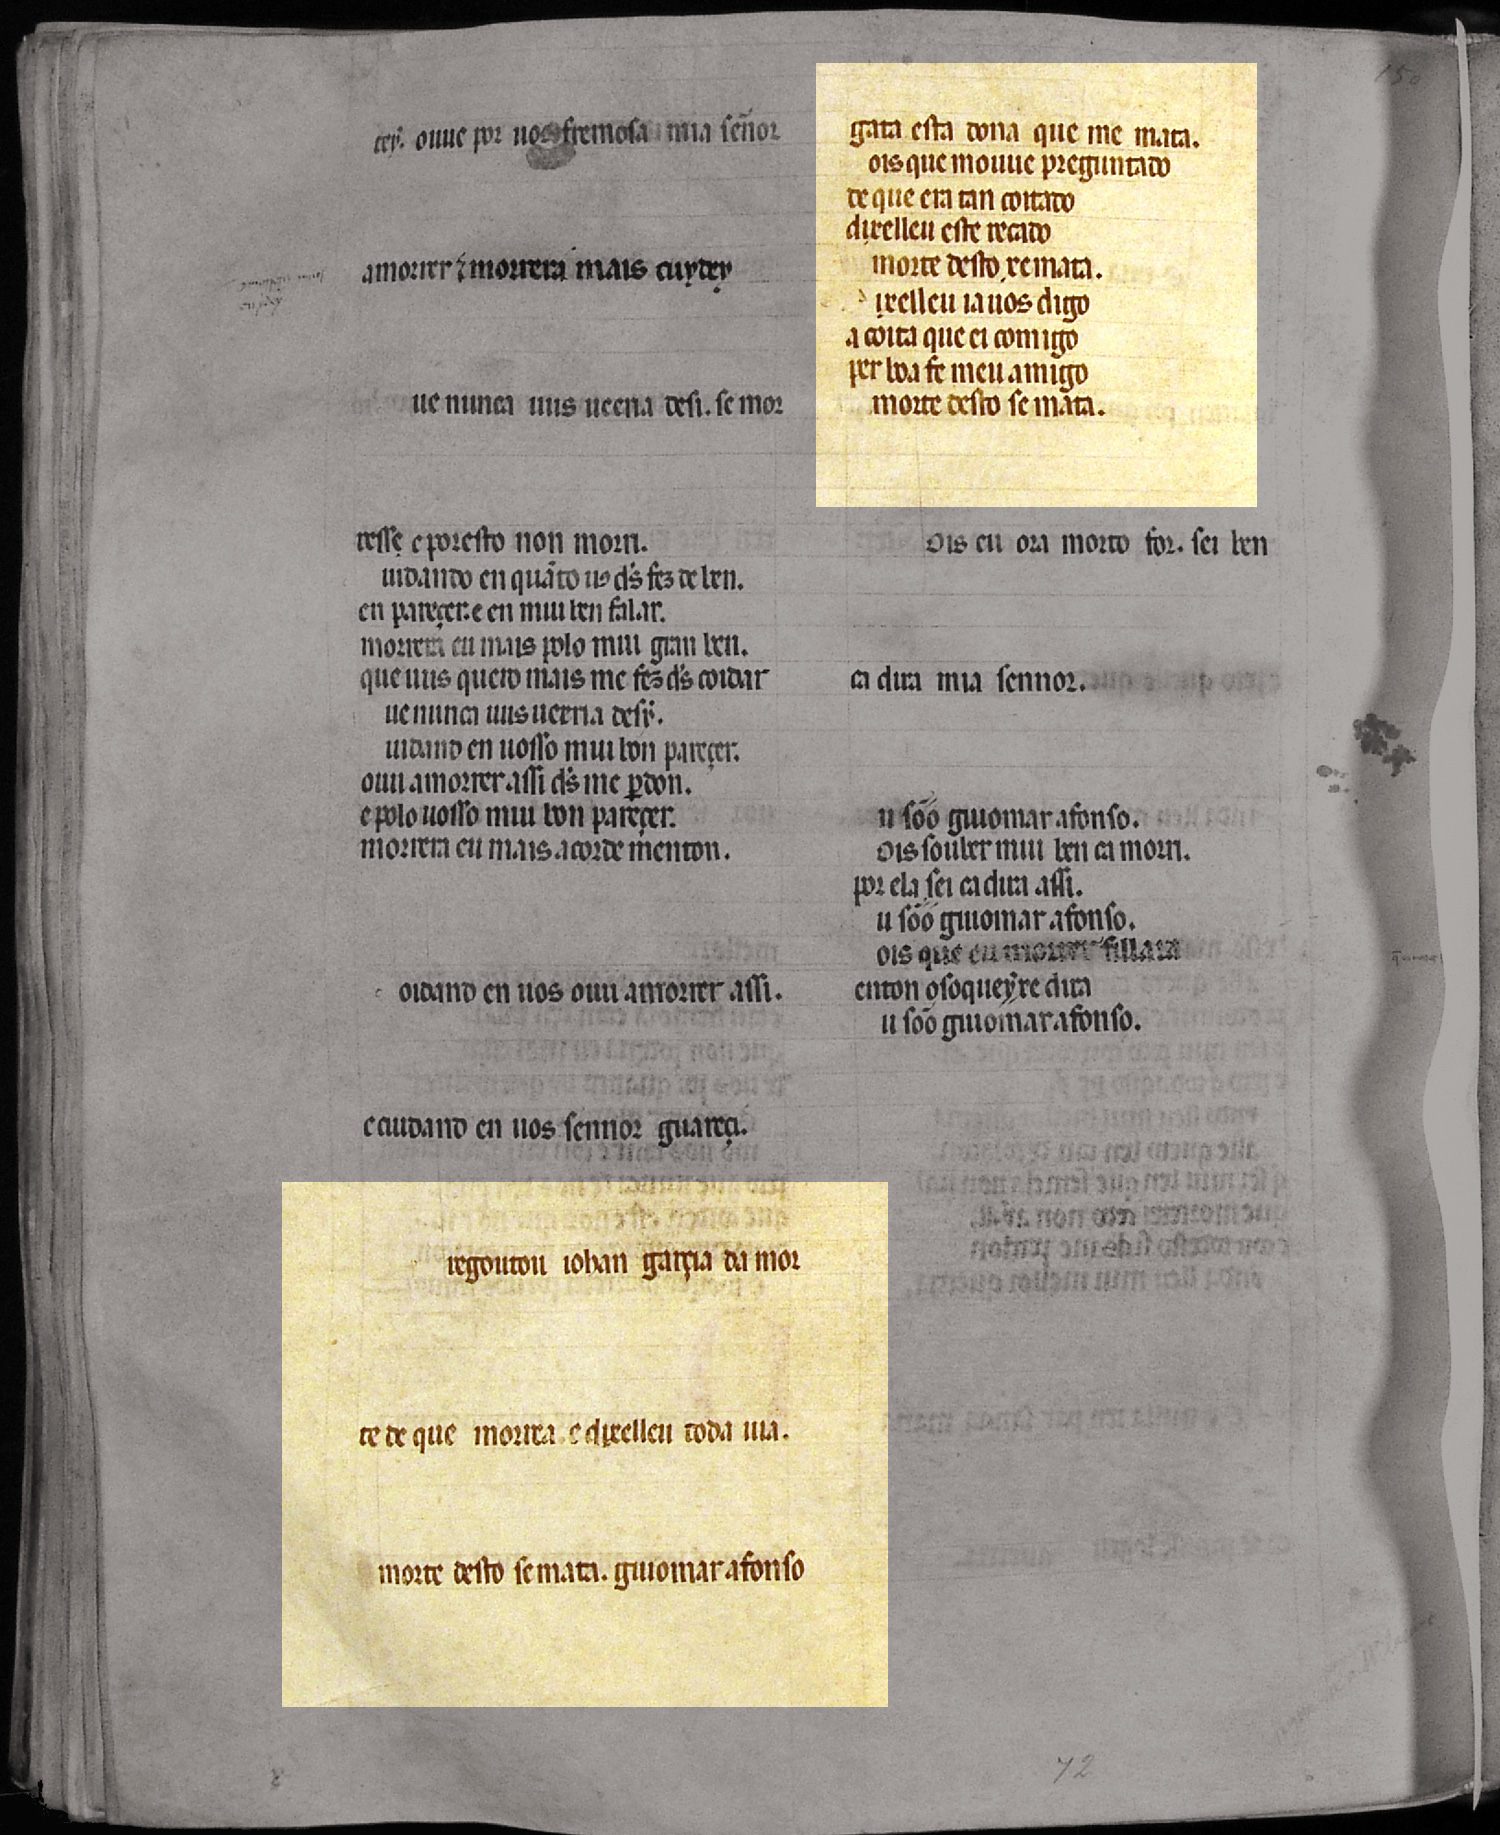 tey. ouue por uos fremosa mia señor
amorrer ⁊ morrera mais cuydey
ue nunca uus ueeria desi. se mor
resse e poresto non morri.
uidando en quãto uꝰ d's fez de ben.
en pareçer. e en mui ben falar.
morrera eu mais polo mui gran ben.
que uus quero mais me fez d's coidar
ue nunca uus uerria desy.
uidando en uosso mui bon pareçer.
oui amorrer assi d's me ꝑdon.
e polo uosso mui bon pareçer.
morrera eu mais acorde menton.
oidando en uos oui amorrer assi.
e cuidando en uos sennor guareçi.
regoutou iohan garçia da mor
te de que morria e dixelleu toda uia.
morte desto se mata. guiomar afonso
gata esta dona que me mata.
ois que mouue preguntado
de que era tan coitado
dixelleu este recado
morte desto xe mata.
ixelleu ia uos digo
a coita que ei comigo
per boa fe meu amigo
morte desto se mata.
ois eu ora morto for. sei ben
ca dira mia sennor.
u sõo guiomar afonso.
ois souber mui ben ca morri.
por ela sei ca dira assi.
u sõo guiomar afonso.
ois que eu morrer fillara
enton osoqueyxe dira
u sõo guiomar afonso.
72
150